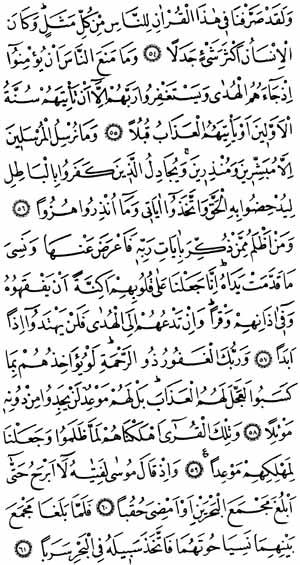 وَلَقَدْ صَرَّفْنَا فِى هٰذَا الْقُرْاٰنِ لِلنَّاسِ مِنْ كُلِّ مَثَلٍ وَكَانَ
الْاِنْسَانُ اَكْثَرَ شَىْءٍ جَدَلًا ﴿٥٤﴾ وَمَا مَنَعَ النَّاسَ اَنْ يُؤْمِنُوا
اِذْ جَاءَهُمُ الْهُدٰى وَيَسْتَغْفِرُوا رَبَّهُمْ اِلَّا اَنْ تَأْتِيَهُمْ سُنَّةُ
الْاَوَّلِينَ اَوْ يَأْتِيَهُمُ الْعَذَابُ قُبُلًا ﴿٥٥﴾ وَمَا نُرْسِلُ الْمُرْسَلِينَ
اِلَّا مُبَشِّرِينَ وَمُنْذِرِينَ وَيُجَادِلُ الَّذِينَ كَفَرُوا بِالْبَاطِلِ
لِيُدْحِضُوا بِهِ الْحَقَّ وَاتَّخَذُوا اٰيَاتِى وَمَا اُنْذِرُوا هُزُوًا ﴿٥٦﴾
وَمَنْ اَظْلَمُ مِمَّنْ ذُكِّرَ بِاٰيَاتِ رَبِّهِ فَاَعْرَضَ عَنْهَا وَنَسِىَ
مَا قَدَّمَتْ يَدَاهُ اِنَّا جَعَلْنَا عَلٰى قُلُوبِهِمْ اَكِنَّةً اَنْ يَفْقَهُوهُ
وَفِى اٰذَانِهِمْ وَقْرًا وَاِنْ تَدْعُهُمْ اِلَى الْهُدٰى فَلَنْ يَهْتَدُوا اِذًا
اَبَدًا ﴿٥٧﴾ وَرَبُّكَ الْغَفُورُ ذُو الرَّحْمَةِ لَوْ يُؤَاخِذُهُمْ بِمَا
كَسَبُوا لَعَجَّلَ لَهُمُ الْعَذَابَ بَلْ لَهُمْ مَوْعِدٌ لَنْ يَجِدُوا مِنْ دُونِهِ
مَوْئِلًا ﴿٥٨﴾ وَتِلْكَ الْقُرٰى اَهْلَكْنَاهُمْ لَمَّا ظَلَمُوا وَجَعَلْنَا
لِمَهْلِكِهِمْ مَوْعِدًا ﴿٥٩﴾ وَاِذْ قَالَ مُوسٰى لِفَتٰيهُ لَا اَبْرَحُ حَتّٰى
اَبْلُغَ مَجْمَعَ الْبَحْرَيْنِ اَوْ اَمْضِىَ حُقُبًا ﴿٦٠﴾ فَلَمَّا بَلَغَا مَجْمَعَ
بَيْنِهِمَا نَسِيَا حُوتَهُمَا فَاتَّخَذَ سَبِيلَهُ فِى الْبَحْرِ سَرَبًا ﴿٦١﴾